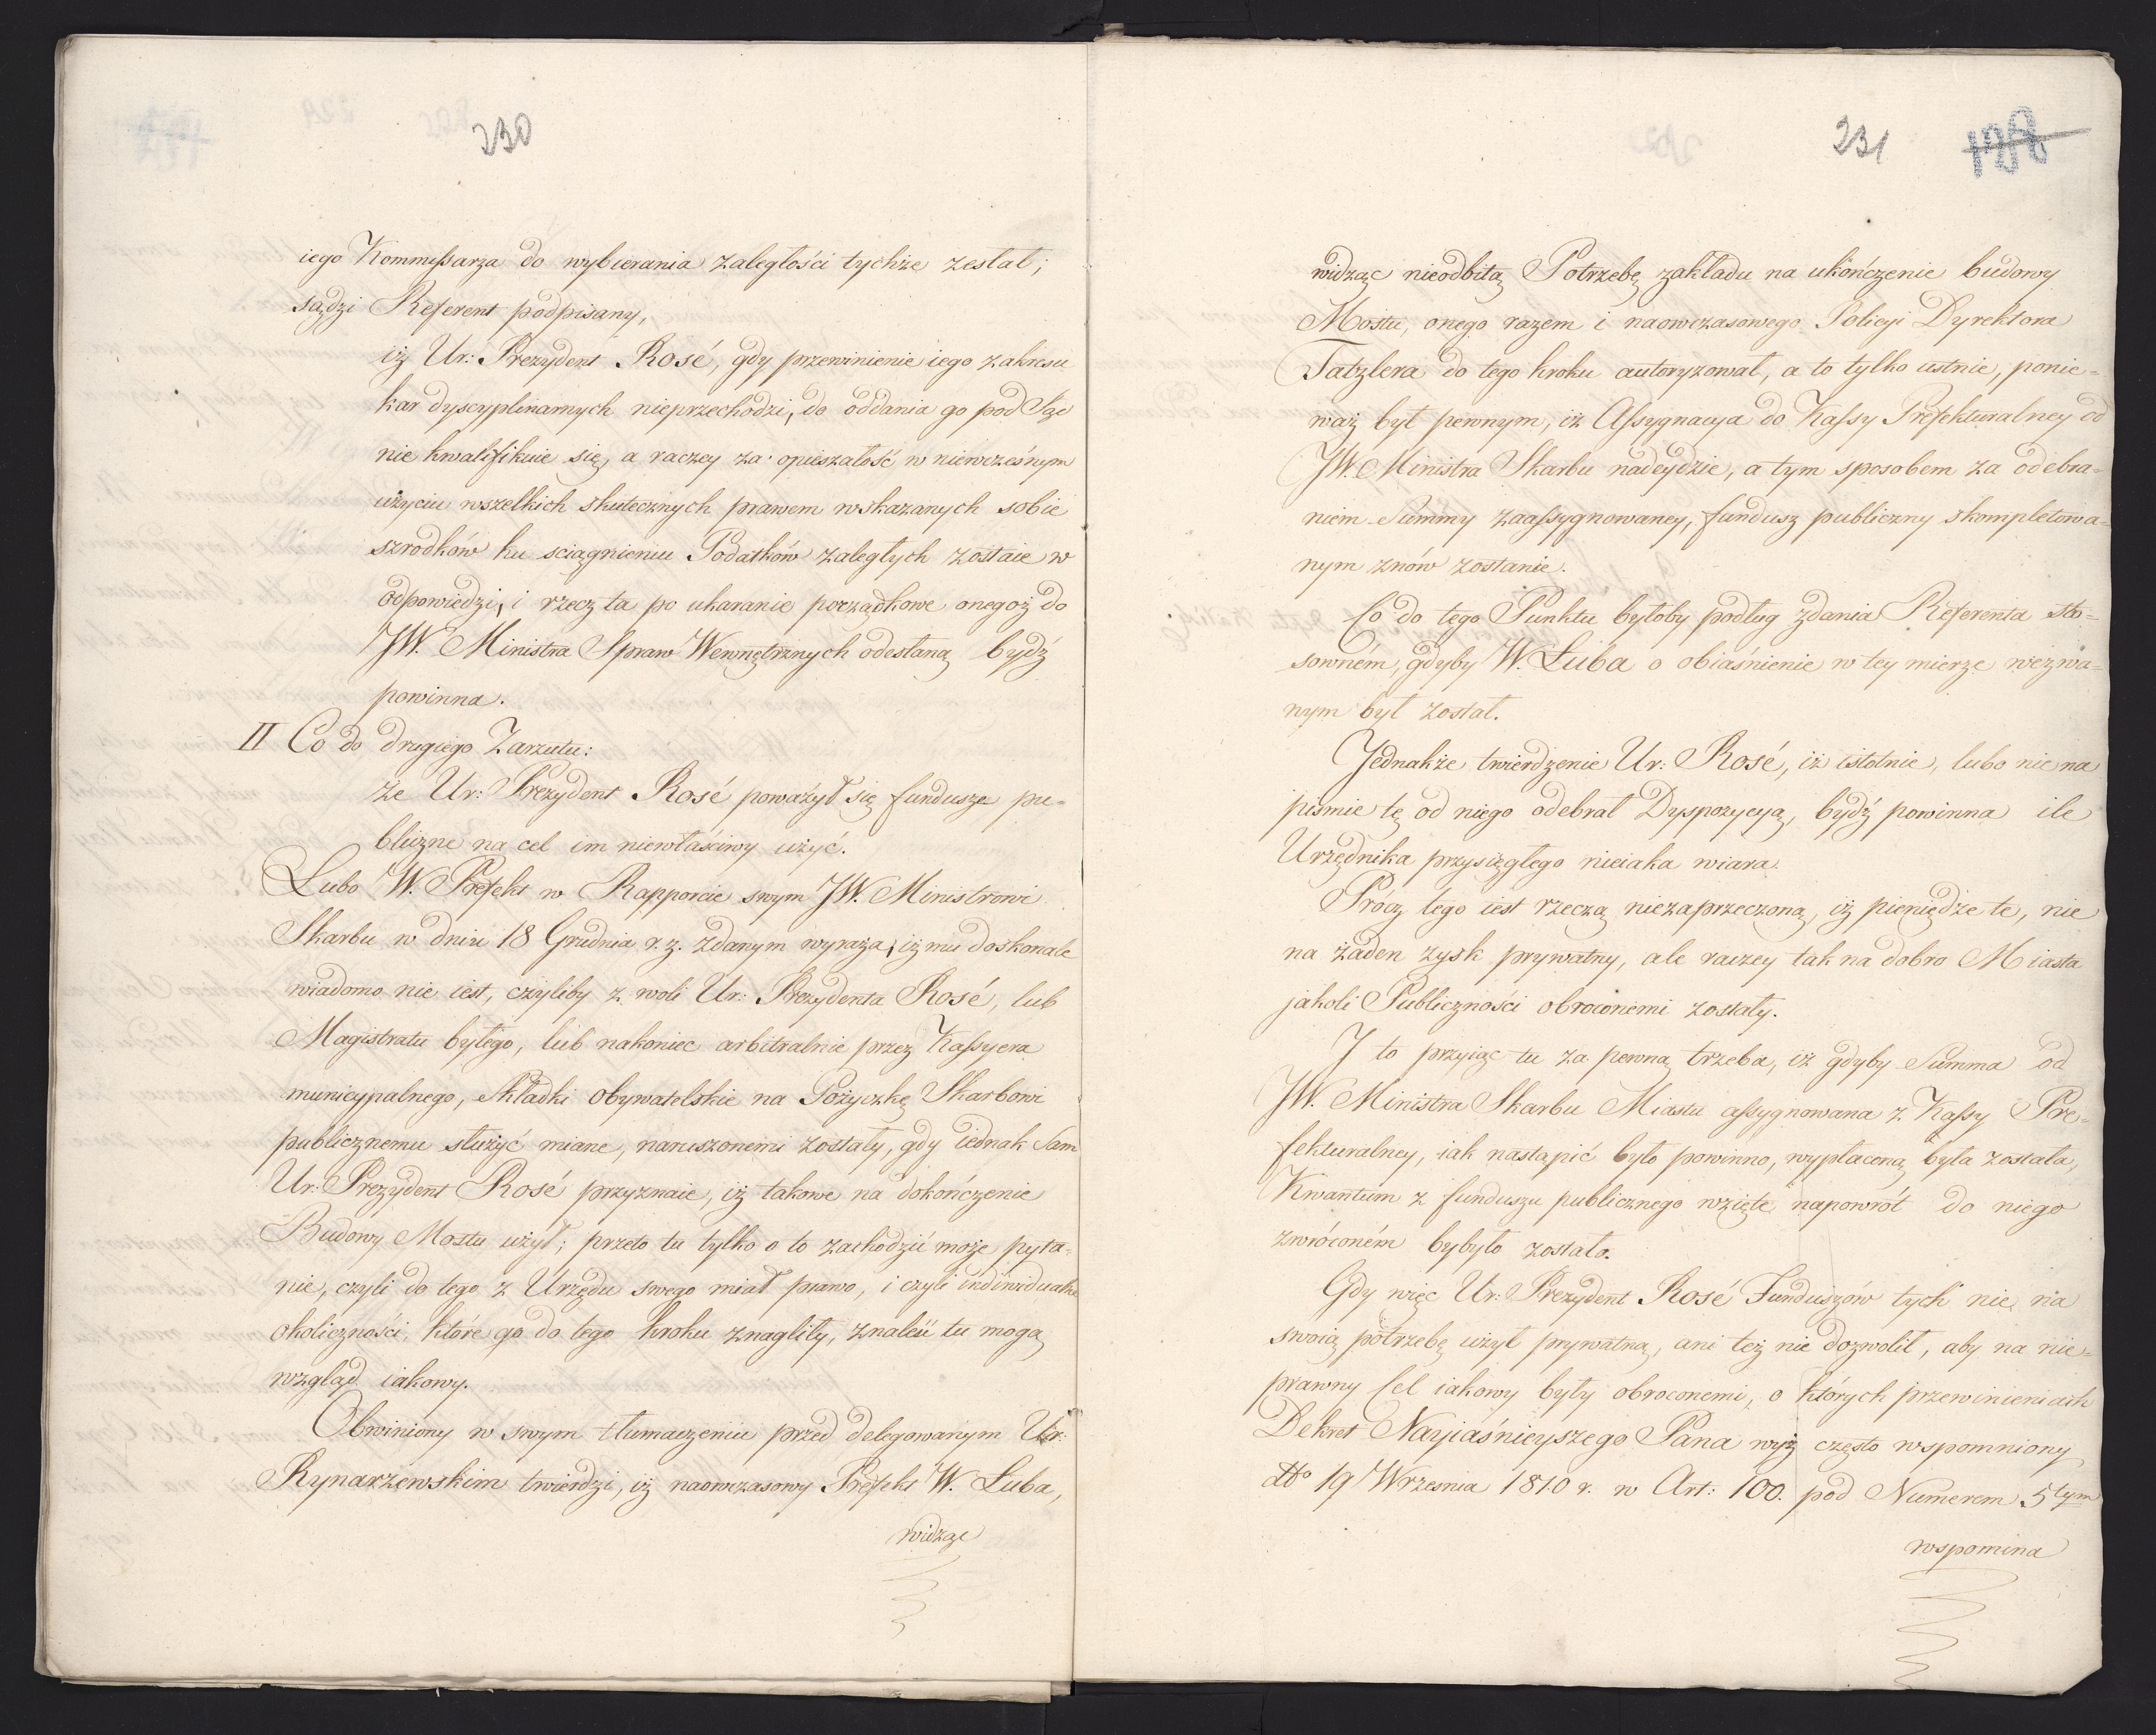 230
iego Kommissarza do wybierania zaległości tychże zesłał;
sądzi Referent podpisany,
iż Ur: Prezydent Rosé, gdy przewinienie iego zakresu
kar dyscyplinarnych nieprzechodzi, do oddania go pod Sąd
nie kwalifikuie się, a raczey za opieszałość w niewcześnym
użyciu wszelkich skutecznych prawem wskazanych sobie
szrodków ku sciągnieniu Podatków zaległych zostaie w
odpowiedzi, i rzecz ta po ukaranie porządkowe onegoż do
JW. Ministra Spraw Wewnętrznych odesłaną bydź
powinna.
II Co do drugiego Zarzutu:
że Ur: Prezydent Rosé poważył się fundusze pu-
bliczne na cel im niewłaściwy użyć.
Lubo W. Prefekt w Rapporcie swym JW. Ministrowi
Skarbu w dniu 18 Grudnia r. z. zdanym wyraża, iż mu doskonale
wiadomo nie iest, czyliby z woli Ur: Prezydenta Rosé, lub
Magistratu byłego, lub nakoniec arbitralnie przez Kassyera
municypalnego, składki obywatelskie na Pożyczkę Skarbowi
publicznemu służyć miane, naruszonemi zostały, gdy iednak Sam
Ur: Prezydent Rosé przyznaie, iż takowe na dokończenie
Budowy Mostu użył; przeto tu tylko o to zachodzić może pyta-
nie, czyli do tego z Urzędu swego miał prawo, i czyli individualne
okoliczności, które go do tego kroku znagliły, znaleść tu mogą
wzgląd iakowy.
Obwiniony w swym tłumaczeniu przed delegowanym Ur:
Rynarzewskim twierdzi, iż naowczasowy Prefekt W. Łuba,
widząc
231
widząc nieodbitą Potrzebę zakładu na ukończenie budowy
Mostu, onego razem i naowczasowego Policyi Dyrektora
Tatzlera do tego kroku autoryzował, a to tylko ustnie, ponie-
waż był pewnym, iż Assygnacya do Kassy Prefekturalney od
JW. Ministra Skarbu nadeydzie, a tym sposobem za odebra-
niem Summy zaassygnowaney, fundusz publiczny skompletowa-
nym znów zostanie.
Co do tego Punktu byłoby podług zdania Referenta sto-
sowném, gdyby W. Łuba o obiaśnienie w tey mierze wezwa-
nym był został.
Jednakże twierdzenie Ur: Rosé, iż istotnie, lubo nie na
pismie tę od niego odebrał Dyspozycyą, bydź powinna ile
Urzędnika przysięgłego nieiaka wiara.
Prócz tego iest rzeczą niezaprzeczoną, iż pieniędze te, nie
na żaden zysk prywatny, ale raczey tak na dobro Miasta
jakoli Publiczności obroconemi zostały.
J to przyiąc tu za pewną trzeba, iż gdyby Summa od
JW. Ministra Skarbu Miastu assygnowana z Kassy Pre-
fekturalney, iak nastąpić było powinno, wypłaconą była została,
Kwantum z funduszu publicznego wzięte napowrót do niego
zwróconém bybyło zostało.
Gdy więc Ur: Prezydent Rosé Funduszów tych nie na
swoią potrzebę użył prywatną, ani też nie dozwolił, aby na nie-
prawny Cel iakowy były obroconemi, o których przewinieniach
Dekret Nayiaśnieyszego Pana wyż często wspomniony
dtto 19 Wrzesnia 1810 r. w Art: 100. pod Numerem 5tym
wspomina